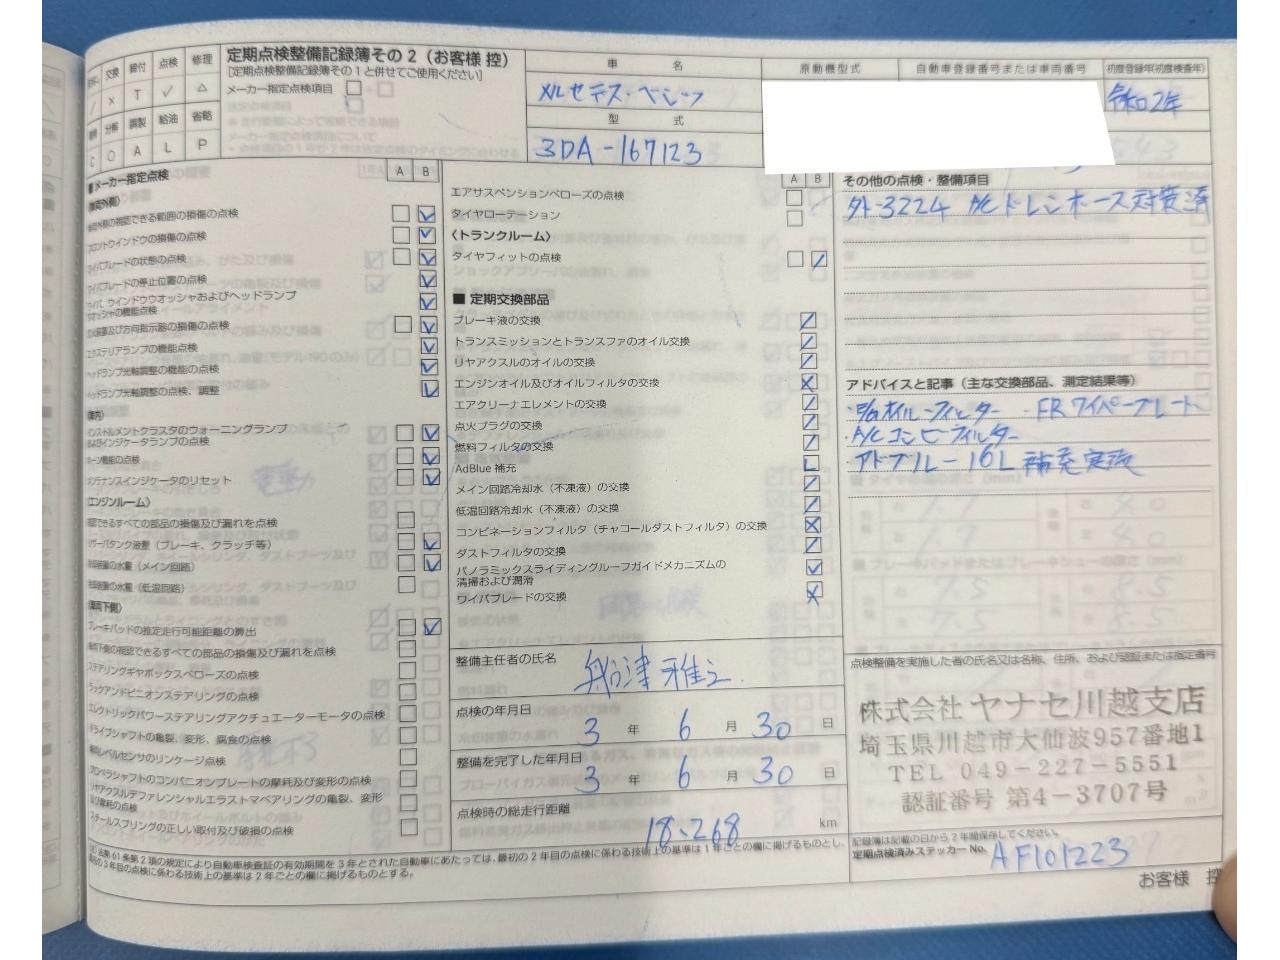 定期点検整備記録簿その2（お客様 控）
[定期点検整備記録簿その1と併せてご使用ください]
メーカー指定点検項目
交換 締付 点検 修理
/ × T ✓ △
分解 調整 給油 省略
C O A L P
車 名
メルセデス・ベンツ
型 式
3DA-167123
原動機型式
自動車登録番号または車両番号
初度登録年(初度検査年)
令和2年
■メーカー指定点検
A B
の視認できる範囲の損傷の点検
フロントウインドウの損傷の点検
ワイパブレードの状態の点検
ワイパブレードの停止位置の点検
ワイパ、ウインドウウオッシャおよびヘッドランプ
ウオッシャの機能点検
灯火装置及び方向指示器の損傷の点検
エクステリアランプの機能点検
ヘッドランプ光軸調整の機能の点検
ヘッドランプ光軸調整の点検、調整
インストルメントクラスタのウォーニングランプ
およびインジケータランプの点検
ホーン機能の点検
メンテナンスインジケータのリセット
〈エンジンルーム〉
視認できるすべての部品の損傷及び漏れを点検
リザーバタンク液量（ブレーキ、クラッチ等）
冷却装置の水量（メイン回路）
冷却装置の水量（低温回路）
〈車両下側〉
ブレーキパッドの推定走行可能距離の算出
車両下側の視認できるすべての部品の損傷及び漏れを点検
ステアリングギヤボックスベローズの点検
ラックアンドピニオンステアリングの点検
エレクトリックパワーステアリングアクチュエーターモータの点検
ドライブシャフトの亀裂、変形、腐食の点検
車両レベルセンサのリンケージ点検
プロペラシャフトのコンパニオンプレートの摩耗及び変形の点検
リヤアクスルデファレンシャルエラストマベアリングの亀裂、変形
及び摩耗の点検
スチールスプリングの正しい取付及び破損の点検
A B
エアサスペンションベローズの点検
タイヤローテーション
〈トランクルーム〉
タイヤフィットの点検
■ 定期交換部品
ブレーキ液の交換
トランスミッションとトランスファのオイル交換
リヤアクスルのオイルの交換
エンジンオイル及びオイルフィルタの交換
エアクリーナエレメントの交換
点火プラグの交換
燃料フィルタの交換
AdBlue 補充
メイン回路冷却水（不凍液）の交換
低温回路冷却水（不凍液）の交換
コンビネーションフィルタ（チャコールダストフィルタ）の交換
ダストフィルタの交換
パノラミックスライディングルーフガイドメカニズムの
清掃および潤滑
ワイパブレードの交換
整備主任者の氏名
船津 雅之
点検の年月日
3 年 6 月 30 日
整備を完了した年月日
3 年 6 月 30 日
点検時の総走行距離
18,268 km
その他の点検・整備項目
外-3224 A/Cドレンホース対策済
アドバイスと記事（主な交換部品、測定結果等）
・E/gオイル-フィルター ・FRワイパーブレード
・A/Cコンビフィルター
アドブルー16L 補充実施
点検整備を実施した者の氏名又は名称、住所、および認証または指定番号
株式会社 ヤナセ川越支店
埼玉県川越市大仙波957番地1
TEL 049-227-5551
認証番号 第4-3707号
記録簿は記載の日から2年間保存してください。
定期点検済みステッカー No. AF101223
(注) 法第61条第2項の規定により自動車検査証の有効期間を3年とされた自動車にあたっては、最初の2年目の点検に係わる技術上の基準は1年ごとの欄に掲げるものとし、
最初の3年目の点検に係わる技術上の基準は2年ごとの欄に掲げるものとする。
お客様 控